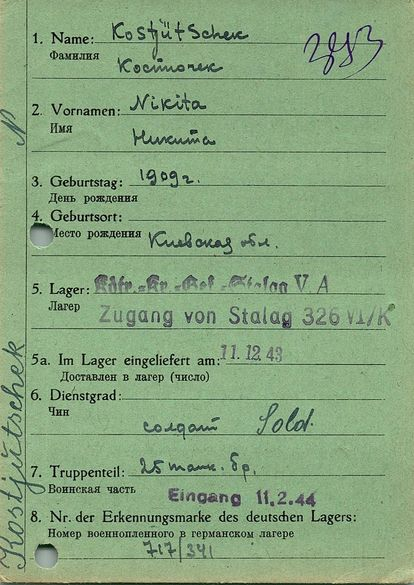 1. Name: Kostjütschek
Фамилия
Костючек
2. Vornamen: Nikita
Имя
Никита
3. Geburtstag: 1909 г.
День рождения
4. Geburtsort:
Место рождения Киевская обл.
5. Lager: Kdtr.-Kr.-Gef.-Stalag V. A
Лагер Zugang von Stalag 326 VI/K
5a. Im Lager eingeliefert am: 11.12.43
Доставлен в лагер (число)
6. Dienstgrad:
Чин
солдат Sold.
7. Truppenteil: 25 танк. бр.
Воинская часть
Eingang 11.2.44
8. Nr. der Erkennungsmarke des deutschen Lagers:
Номер военнопленного в германском лагере
717/341
Kostjütschek N